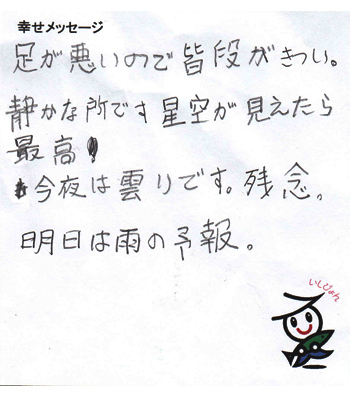 幸せメッセージ
足が悪いので皆段がきつい。
静かな所です星空が見えたら
最高!
今夜は雲りです。残念。
明日は雨の予報。
いしぴょん